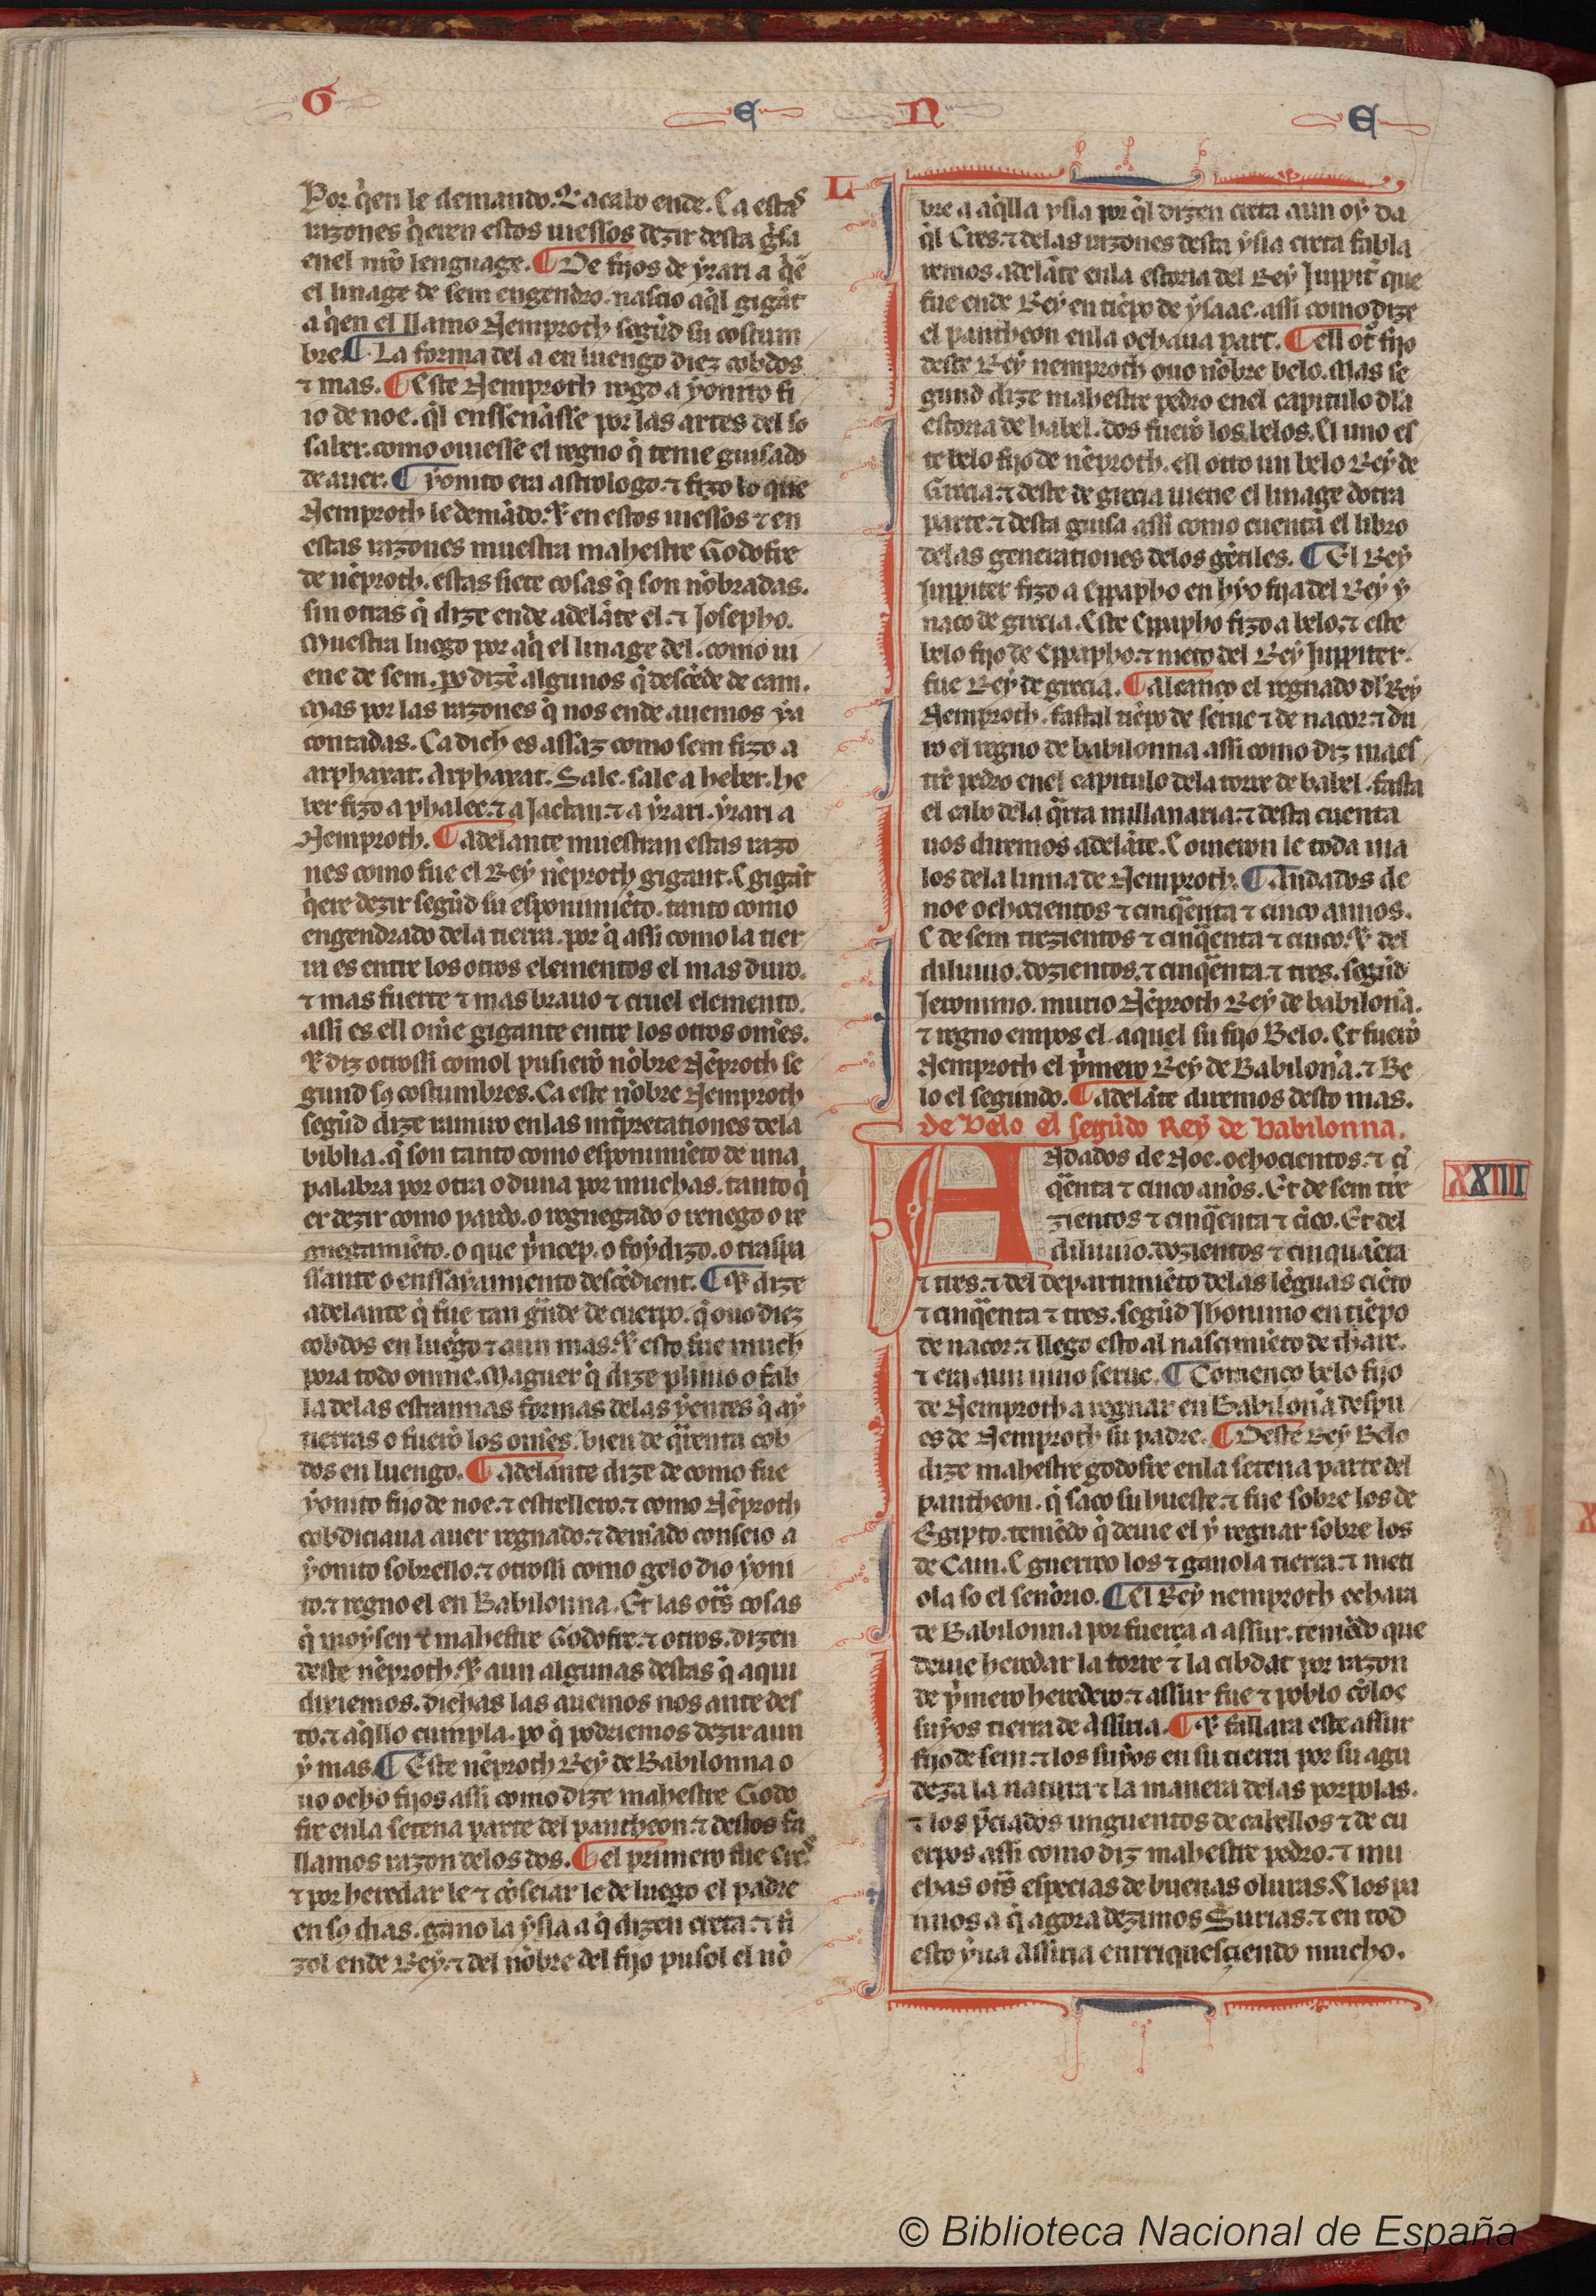 G E N E
Por q̇en le demando. ⁊ acabo ende. Ca estas
razones q̇eren estos uiessos dezir desta gͥsa
enel nr̄o lenguage. ¶ De fijos de yrari a q̇ē
el linage de sem engendro. nascio aq̇l gigāt
a q̇en el llamo Nemproth segūd su costum
bre. ¶ La forma del a en luengo diez cobdos
⁊ mas. ¶ Este Nemproth rogo a yonito fi
io de noe. q̇l enssennasse por las artes del so
saber. como ouiesse el regno q̇ tenie guisado
de auer. ¶ yonito era astrologo. ⁊ fizo lo que
Nemproth le demādo. ⁊ en estos uiessos ⁊ en
estas razones muestra mahestre Godofre
de nēproth. estas siete cosas q̇ son nōbradas.
sin otras q̇ dize ende adelāte el. ⁊ Josepho.
Muestra luego por aq̇ el linage del. como ui
ene de sem. po dizē algunos q̇ descēde de cam.
Mas por las razones q̇ nos ende auemos ya
contadas. Ca dich es assaz como sem fizo a
arphaxat. Arphaxat. Sale. sale a heber. he
ber fizo a phalec. ⁊ a Jactan. ⁊ a yrari. yrari a
Nemproth. ¶ adelante muestran estas razo
nes como fue el Rey nēproth gigant. E gigāt
q̇ere dezir segūd su esponimiēto. tanto como
engendrado dela tierra. por q̇ assi como la tier
ra es entre los otros elementos el mas duro.
⁊ mas fuerte ⁊ mas brauo ⁊ cruel elemento.
assi es ell om̄e gigante entre los otros om̄es.
⁊ diz otrossi comol pusierō nōbre Nēproth se
gund sꝯ costumbres. Ca este nōbre Nemproth
segūd dize ramiro enlas int̄pretationes dela
biblia. q̇ son tanto como esponimiēto de una
palabra por otra o duna por muchas. tanto q̇
er dezir como pardo. o regnegado o renego o re
gnegamiēto. o que p̄ncep. o foydizo. o traspa
ssante o enssayamiento descēdient. ¶ ⁊ dize
adelante q̇ fue tan gͣnde de cuerpo. q̇ ouo diez
cobdos en luēgo ⁊ aun mas. ⁊ esto fue much
pora todo omne. Maguer q̇ dize plinio o fab
la delas estrannas formas delas yentes q̇ ay
tierras o fuerō los om̄es. bien de qͣrenta cob
dos en luengo. ¶ adelante dize de como fue
yonito fijo de noe. ⁊ estrellero. ⁊ como Nēproth
cobdiciaua auer regnado. ⁊ demādo conseio a
yonito sobrello. ⁊ otrossi como gelo dio yoni
to. ⁊ regno el en Babilonna. Et las otͣs cosas
q̇ moysen ⁊ mahestre Godofre. ⁊ otros. dizen
deste nēproth. ⁊ aun algunas destas q̇ aqui
dixiemos. dichas las auemos nos ante des
to. ⁊ aq̇llo cumpla. po q̇ podriemos dezir aun
y mas. ¶ Este nēproth Rey de Babilonna o
uo ocho fijos assi como dize mahestre Godo
fre enla setena parte del pantheon. ⁊ destos fa
llamos razon delos dos. ¶ el primero fue Cres.
⁊ por heredar le ⁊ cōseiar le de luego el padre
en sꝯ dias. gano la ysla a q̇ dizen creta. ⁊ fi
zol ende Rey. ⁊ del nōbre del fijo pusol el nō
L
bre a aq̇lla ysla por q̇l dizen creta aun oy da
q̇l Cres. ⁊ delas razones desta ysla creta fabla
remos adelāte enla estoria del Rey Juppit̄ que
fue ende Rey en tiēpo de ysaac. assi como dize
el pantheon enla ochaua part. ¶ ell otͦ fijo
deste Rey nemproth ouo nōbre belo. Mas se
gund dize mahestre pedro enel capitulo dla
estoria de babel. dos fuerō los belos. El uno es
te belo fijo de nēproth. ell otro un belo Rey de
Grecia. ⁊ deste de grecia uiene el linage dotra
parte. ⁊ desta guisa assi como cuenta el libro
delas generationes delos gētiles. ¶ El Rey
Juppiter fizo a Eppapho en hyo fija del Rey y
naco de grecia. Este Eppapho fizo a belo. ⁊ este
belo fijo de Eppapho. ⁊ nieto del Rey Juppiter.
fue Rey de grecia. ¶ alcanco el regnado dl Rey
Nemproth. fastal tiēpo de seruc ⁊ de nacor. ⁊ du
ro el regno de babilonna assi como diz maes
tre pedro enel capitulo dela torre de babel. fasta
el cabo dela qͣrta millanaria. ⁊ desta cuenta
uos diremos adelāte. E omeron le toda uia
los dela linna de Nemproth. ¶ Andados de
noe ochocientos ⁊ cinqͣenta ⁊ cinco annos.
E de sem trezientos ⁊ cinqͣenta ⁊ cinco. ⁊ del
diluuio. dozientos. ⁊ cinqͣenta. ⁊ tres. segūd
Jeronimo. murio Nēproth Rey de babilon̄a.
⁊ regno empos el. aquel su fijo Belo. Et fuerō
Nemproth el p̄mero Rey de Babilon̄a. ⁊ Be
lo el segundo. ¶ adelāte diremos desto mas.
de Belo el segūdo Rey de babilonna.
ANdados de Noe. ochocientos. ⁊ ci
qͣenta ⁊ cinco an̄os. Et de sem tre
zientos ⁊ cinqͣenta ⁊ cīco. Et del
diluuio. dozientos ⁊ cinquaēta
⁊ tres. ⁊ del departimiēto delas lēguas ciēto
⁊ cinqͣenta ⁊ tres. segūd Jheronimo en tiēpo
de nacor. ⁊ llego esto al nascimiēto de thare.
⁊ era aun uiuo seruc. ¶ Comenco belo fijo
de Nemproth a regnar en Babilon̄a despu
es de Nemproth su padre. ¶ Deste Rey Belo
dize mahestre godofre enla setena parte del
pantheon. q̇ saco su hueste. ⁊ fue sobre los de
Egipto. teniēdo q̇ deuie el y regnar sobre los
de Cam. E guerreo los ⁊ gano la tierra. ⁊ meti
ola so el sen̄orio. ¶ El Rey nemproth echara
de Babilonna por fuerça a assur. teniēdo que
deuie heredar la torre ⁊ la cibdat por razon
de p̄mero heredero. ⁊ assur fue ⁊ poblo cōlos
suyos tierra de Assiria. ¶ ⁊ fallara este assur
fijo de sem. ⁊ los suyos en su tierra por su agu
deza la natura ⁊ la manera delas porpolas.
⁊ los p̄ciados unguentos de cabellos ⁊ de cu
erpos assi como diz mahestre pedro. ⁊ mu
chas otͣs especias de buenas oluras. E los pa
nnos a q̇ agora dezimos Surias. ⁊ en tod
esto yua assiria enrriquesçiendo mucho.
XXIII
© Biblioteca Nacional de España